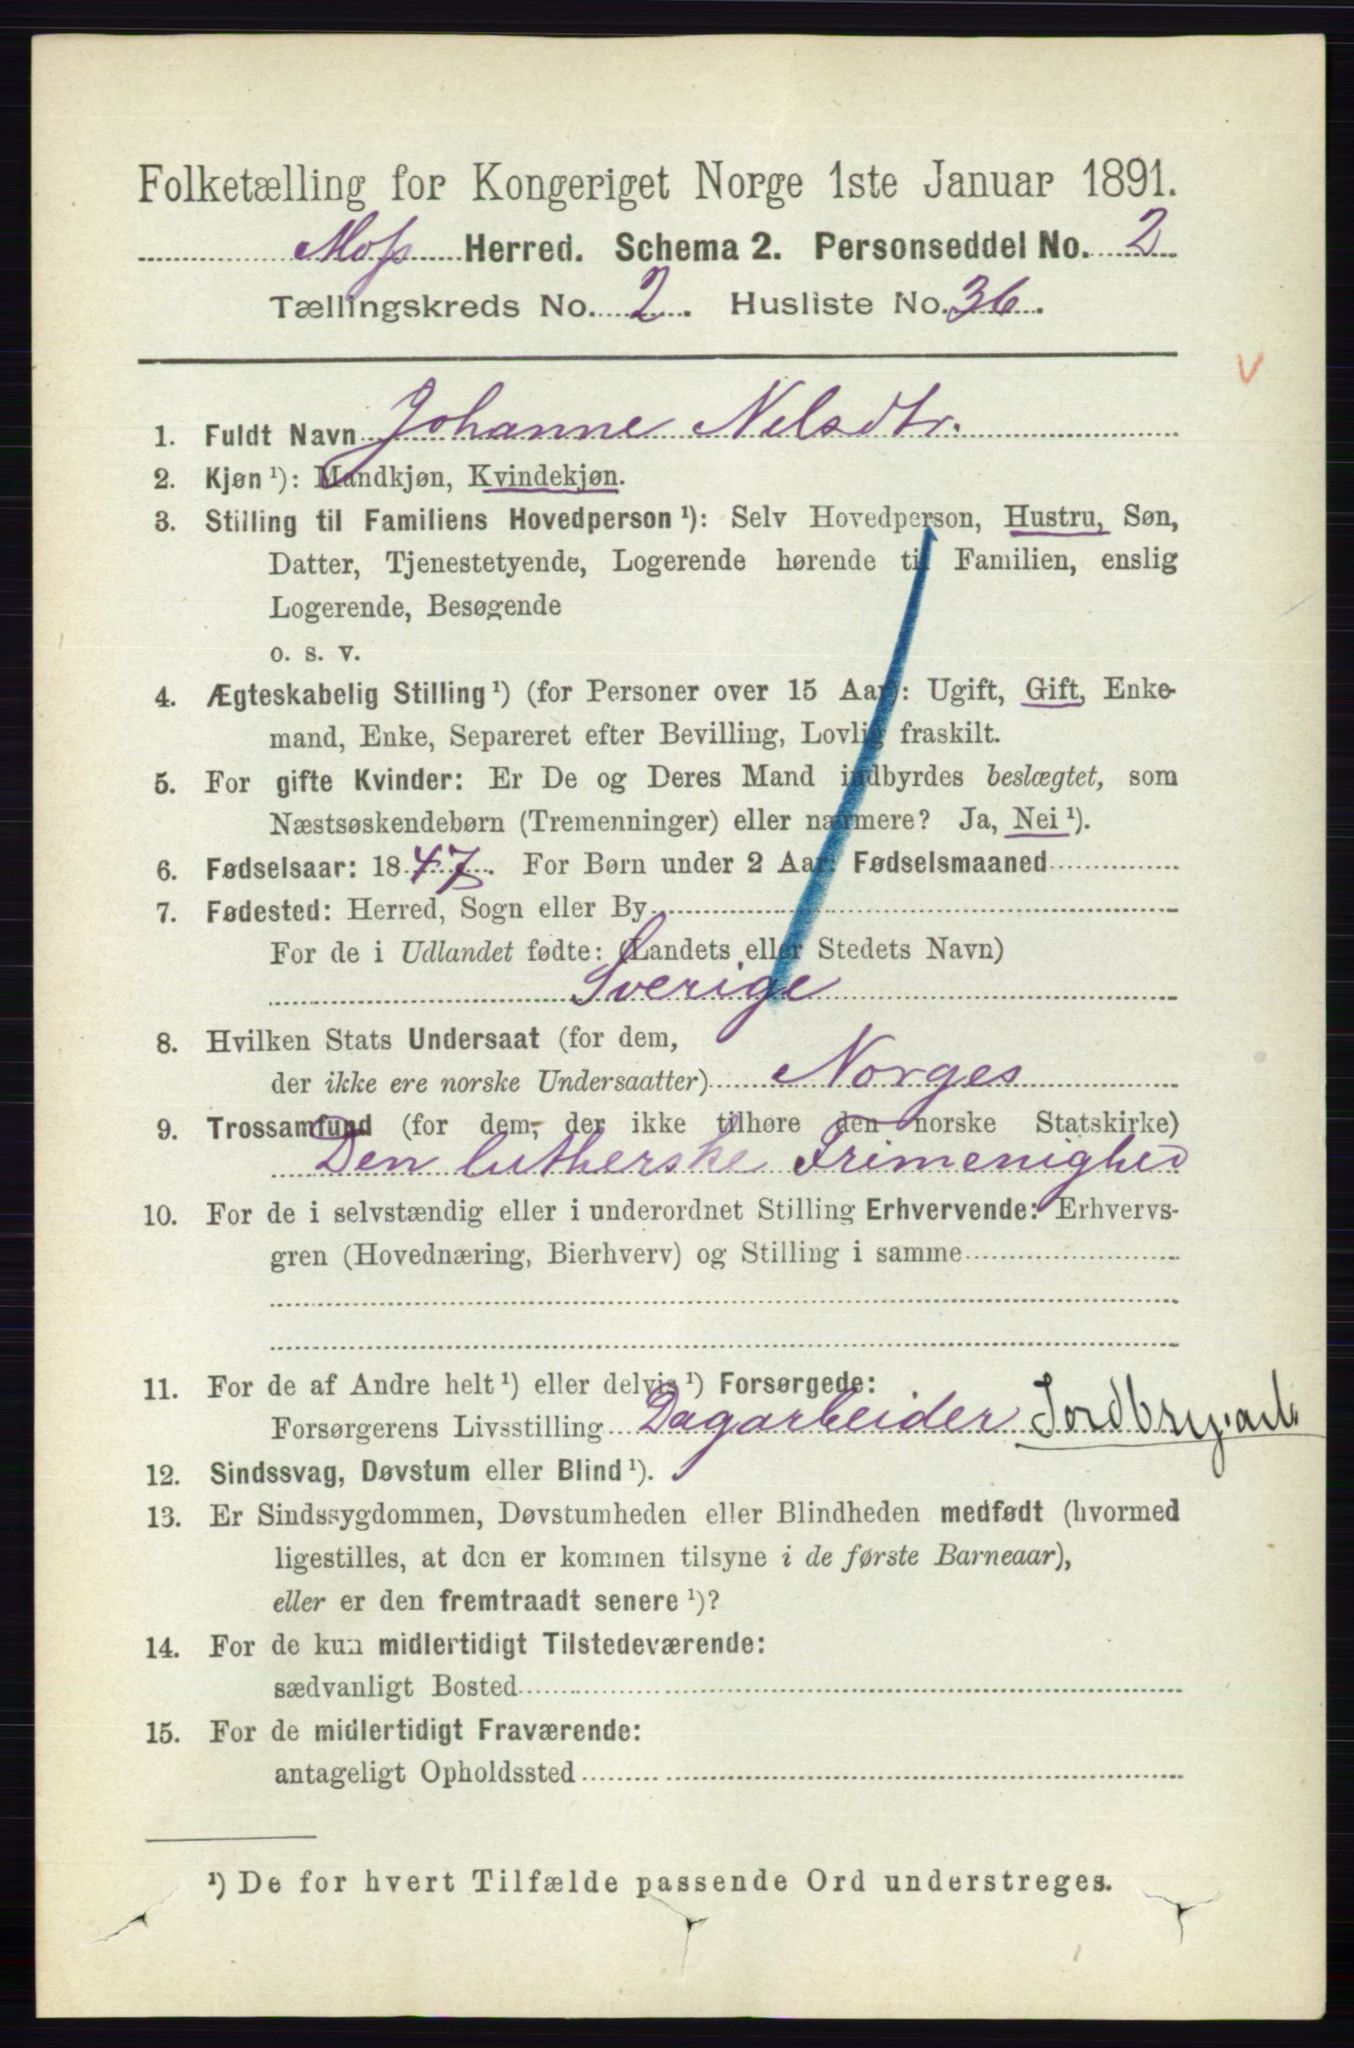 Folketælling for Kongeriget Norge 1ste Januar 1891.
Moss Herred. Schema 2. Personseddel No. 2
Tællingskreds No. 2. Husliste No. 36.
v
1. Fuldt Navn Johanne Nelsdtr.
2. Kjøn ¹): Mandkjøn, Kvindekjøn.
3. Stilling til Familiens Hovedperson ¹): Selv Hovedperson, Hustru, Søn,
Datter, Tjenestetyende, Logerende hørende til Familien, enslig
Logerende, Besøgende
o. s. v.
4. Ægteskabelig Stilling ¹) (for Personer over 15 Aar): Ugift, Gift, Enke-
mand, Enke, Separeret efter Bevilling, Lovlig fraskilt.
5. For gifte Kvinder: Er De og Deres Mand indbyrdes beslægtet, som
Næstsøskendebørn (Tremenninger) eller nærmere? Ja, Nei ¹).
6. Fødselsaar: 1847. For Børn under 2 Aar: Fødselsmaaned
7. Fødested: Herred, Sogn eller By
For de i Udlandet fødte: (Landets eller Stedets Navn)
Sverige
8. Hvilken Stats Undersaat (for dem,
der ikke ere norske Undersaatter) Norges
9. Trossamfund (for dem, der ikke tilhøre den norske Statskirke)
Den lutherske Frimenighed
10. For de i selvstændig eller i underordnet Stilling Erhvervende: Erhvervs-
gren (Hovednæring, Bierhverv) og Stilling i samme
11. For de af Andre helt ¹) eller delvis ¹) Forsørgede:
Forsørgerens Livsstilling Dagarbeider Jordbrug.arb.
12. Sindssvag, Døvstum eller Blind ¹).
13. Er Sindssygdommen, Døvstumheden eller Blindheden medfødt (hvormed
ligestilles, at den er kommen tilsyne i de første Barneaar),
eller er den fremtraadt senere ¹)?
14. For de kun midlertidigt Tilstedeværende:
sædvanligt Bosted
15. For de midlertidigt Fraværende:
antageligt Opholdssted
¹) De for hvert Tilfælde passende Ord understreges.